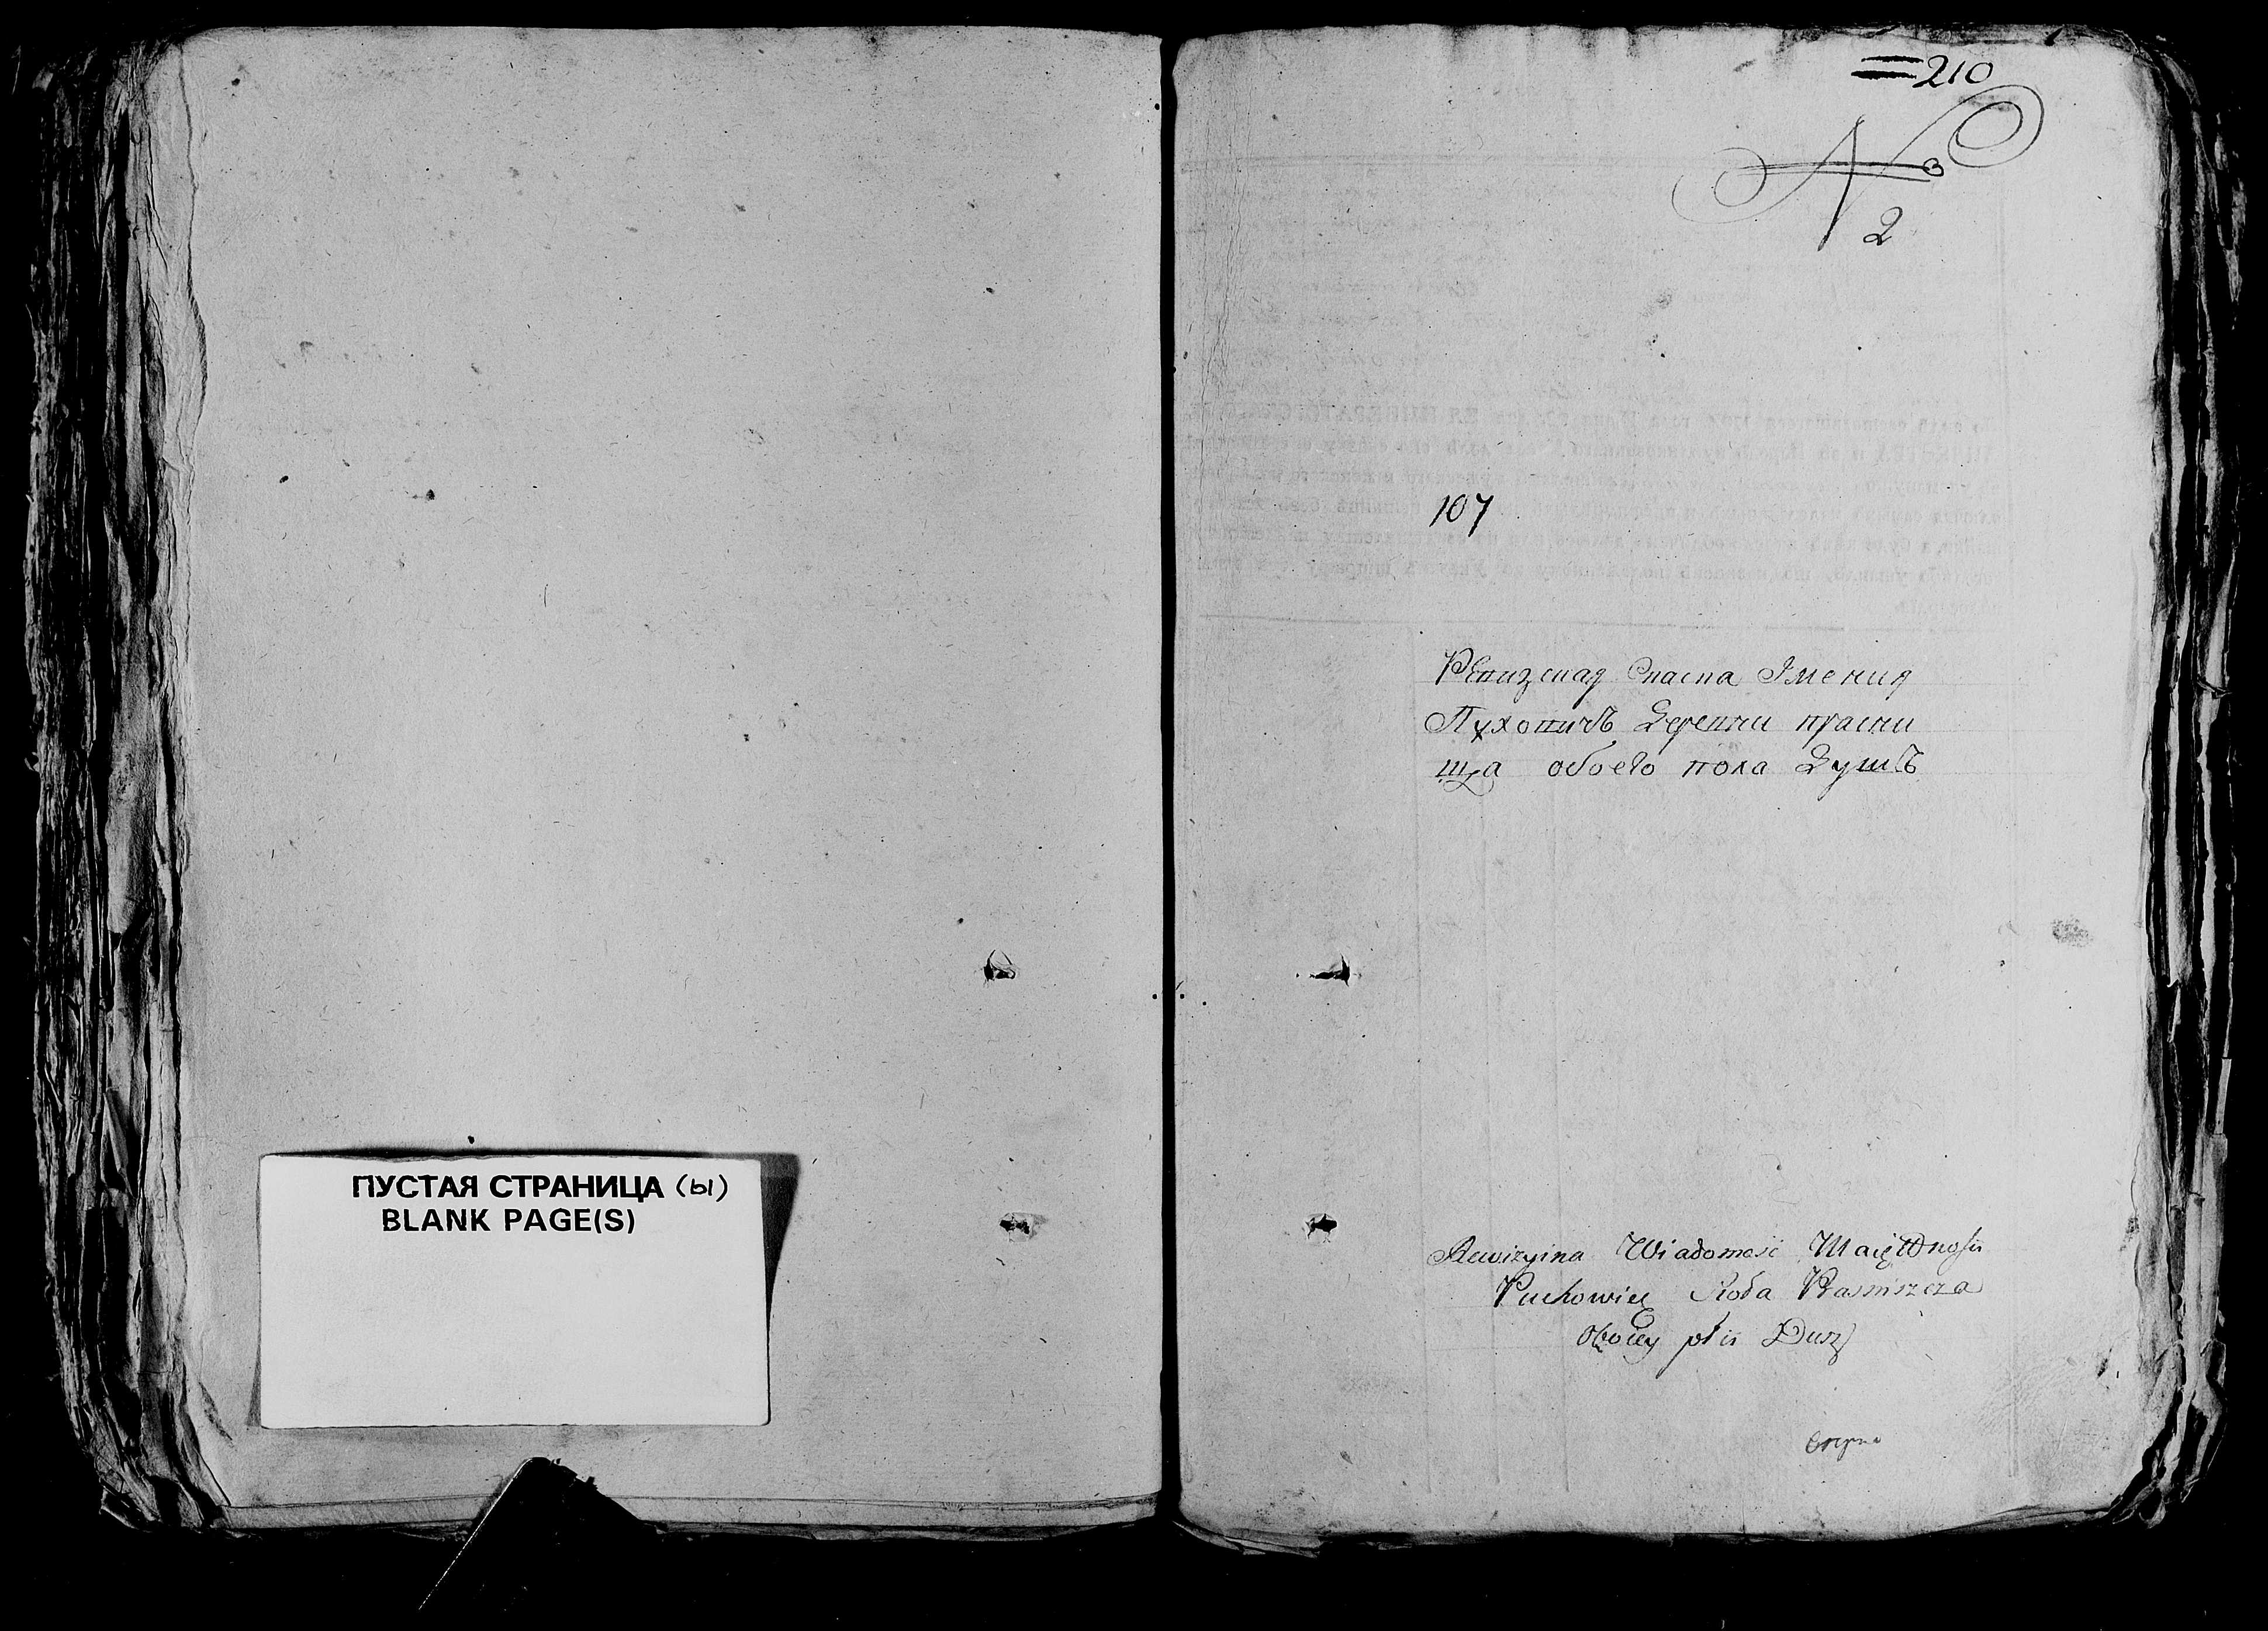 ПУСТАЯ СТРАНИЦА (ы)
BLANK PAGE(S)
210
N
2
107
Ревизская Скаска Имения
Пуховичъ Деревни красни
ща обоего пола Душъ
Rewizyina Wiadomość Maiętności
Puchowicz Sioła Krasniszcza
Oboiey płci Dusz